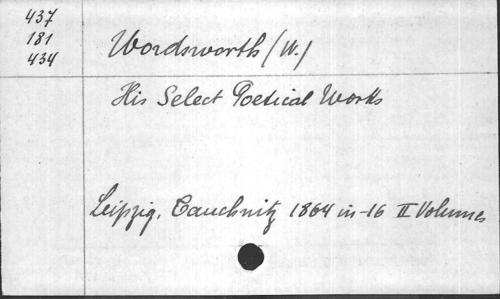 437
181
434
Wordsworth (W.)
His Select Poetical Works
Leipzig, Tauchnitz 1864 in-16 II Volumes